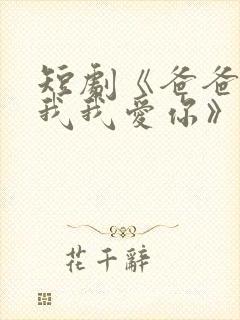 短劇《爸爸
我我愛你》
花千辭